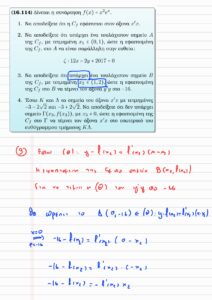 (16.114) Δίνεται η συνάρτηση f(x) = x²eˣ.
1. Να αποδείξετε ότι η C_f εφάπτεται στον άξονα x'x.
2. Να αποδείξετε ότι υπάρχει ένα τουλάχιστον σημείο A
της C_f, με τετμημένη x₁ ∈ (0, 1), ώστε η εφαπτομένη
της C_f στο A να είναι παράλληλη στην ευθεία:
ζ : 12x − 2y + 2017 = 0
3. Να αποδείξετε ότι υπάρχει ένα τουλάχιστον σημείο B
της C_f, με τετμημένη x₂ ∈ (1, 2), ώστε η εφαπτομένη
της C_f στο B να τέμνει τον άξονα y'y στο −16.
4. Έστω K και Λ τα σημεία του άξονα x'x με τετμημένες
−3 − 2√2 και −3 + 2√2. Να αποδείξετε ότι δεν υπάρχει
σημείο Γ(x₀, f(x₀)), με x₀ ≠ 0, ώστε η εφαπτομένη της
C_f στο Γ να τέμνει τον άξονα x'x στο εσωτερικό του
ευθύγραμμου τμήματος KΛ.
Έστω (θ): y − f(x₂) = f'(x₂)(x − x₂)
η εφαπτομένη της C_f στο σημείο B(x₂, f(x₂))
y'y στο −16
(0, −16) ∈ (θ): y − f(x₂) = f'(x₂)(x − x₂)
x=0
y=−16
−16 − f(x₂) = f'(x₂) (0 − x₂)
−16 − f(x₂) = f'(x₂) · (−x₂)
−16 − f(x₂) = − f'(x₂) x₂